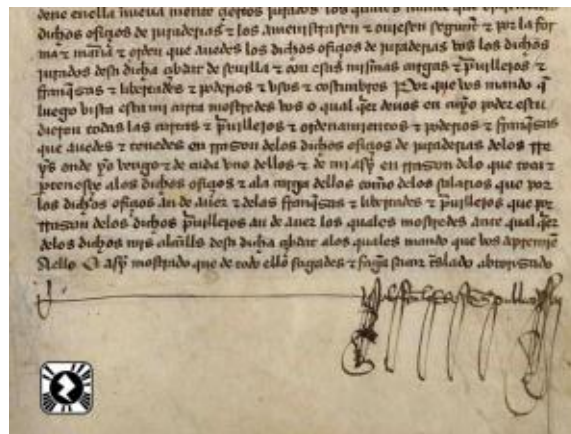 dene enella nueva mente çiertos jurados los quales
dichos ofiçios de juraderias τ los amenistrasen τ oviesen segunt τ por la for
ma τ manera τ orden que avedes los dichos ofiçios de juraderias vos los dichos
jurados desta dicha çibdat de sevilla τ con estas mismas cargas τ preuillejos τ
franquesas τ libertades τ poderios τ usos τ costumbres Por que vos mando que
luego vista esta mi carta mostredes vos o qual quier de vos en cuyo poder estu
vieren todas las cartas τ preuillejos τ ordenamientos τ poderios τ franquesas
que avedes τ tenedes en rrason delos dichos ofiçios de juraderias delos rre
yes onde yo vengo τ de cada uno dellos τ de mi asy en rrason delo que toca τ
pertenesçe alos dichos ofiçios τ ala carga dellos como delos salarios que por
los dichos ofiçios an de aver τ delas franquesas τ libertades τ preuillejos que por
rrason delos dichos preuillejos an de aver los quales mostredes ante qual quier
delos dichos mis alcalles desta dicha çibdat alos quales mando que vos apremien
A ello E asy mostrado que de todo ello fagades τ fagan sacar treslado abtorisado